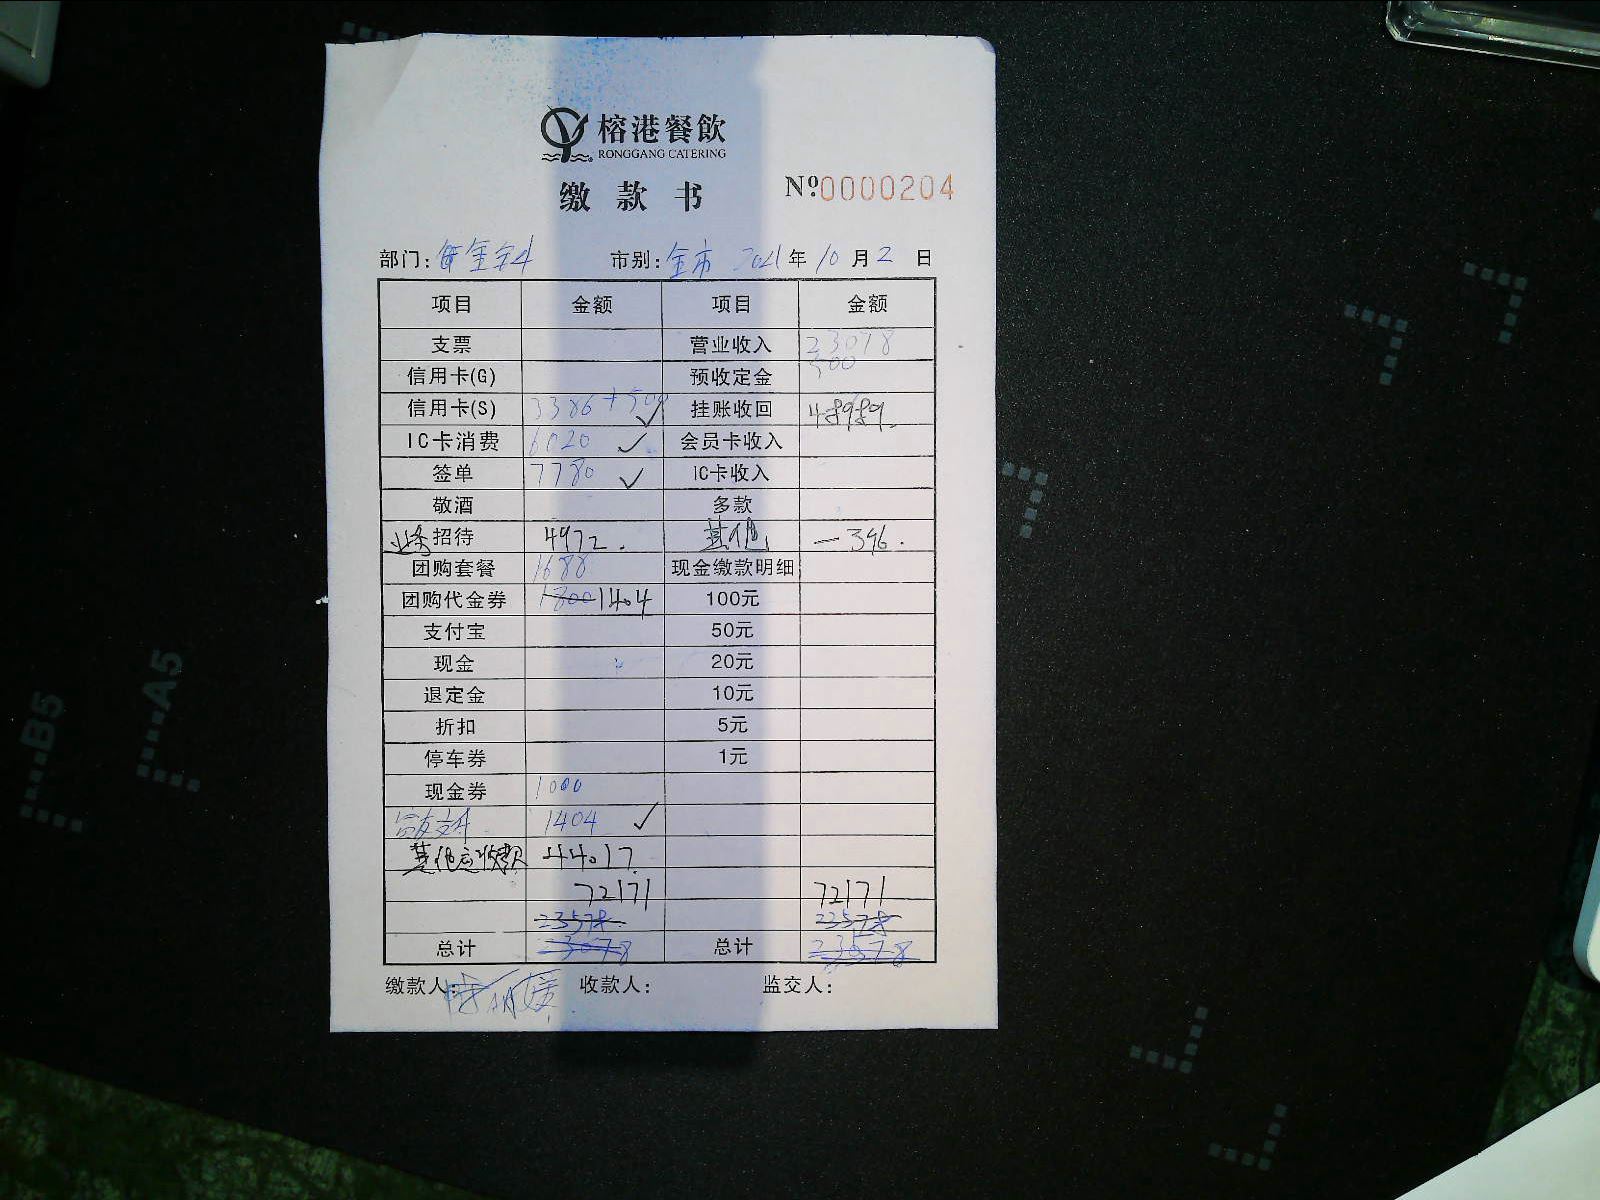 榕港餐飲
RONGGANG CATERING
缴款书 №0000204
部门: 市别: 全市 2021年10月2日
项目 金额 项目 金额
支票 营业收入 23078
信用卡(G) 预收定金 500
信用卡(S) 3386+500 ✓ 挂账收回 48989.
IC卡消费 6020 ✓ 会员卡收入
签单 7780 ✓ IC卡收入
敬酒 多款
业务招待 4972. 其他 -396.
团购套餐 1688 现金缴款明细
团购代金券 1800 1404 100元
支付宝 50元
现金 20元
退定金 10元
折扣 5元
停车券 1元
现金券 1000
1404 ✓
其他应收款 44017
72171 72171
23578 23578
总计 23078 总计 23578
缴款人: 收款人: 监交人:
B5
A5